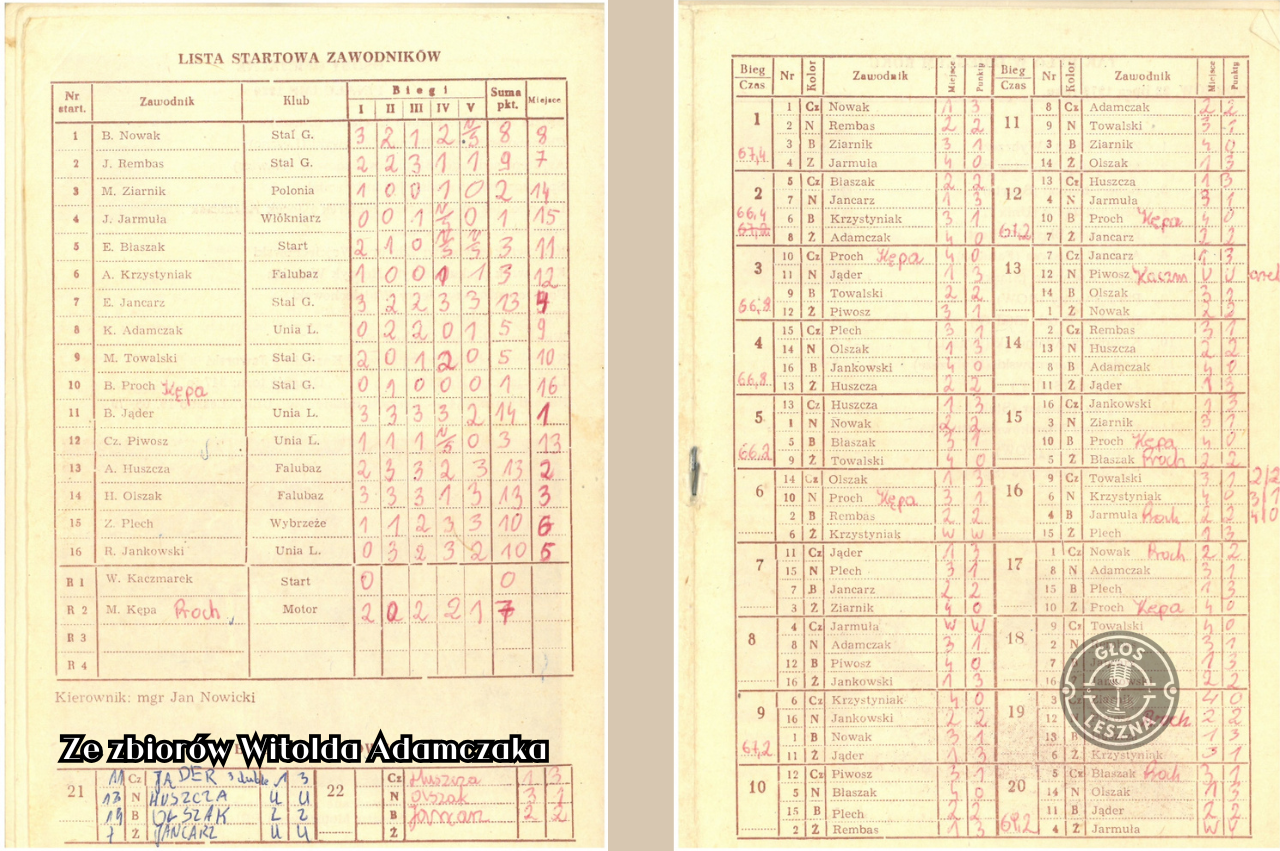 LISTA STARTOWA ZAWODNIKÓW
Nr start. Zawodnik Klub Biegi I II III IV V Suma pkt. Miejsce
1 B. Nowak Stal G. 3 2 1 2 8 8
2 J. Rembas Stal G. 2 2 3 1 1 9 7
3 M. Ziarnik Polonia 1 0 0 1 0 2 14
4 J. Jarmuła Włókniarz 0 0 1 0 1 15
5 E. Błaszak Start 2 1 0 3 11
6 A. Krzystyniak Falubaz 1 0 0 1 1 3 12
7 E. Jancarz Stal G. 3 2 2 3 3 13 4
8 K. Adamczak Unia L. 0 2 2 0 1 5 9
9 M. Towalski Stal G. 2 0 1 2 0 5 10
10 B. Proch Kępa Stal G. 0 1 0 0 0 1 16
11 B. Jąder Unia L. 3 3 3 3 2 14 1
12 Cz. Piwosz Unia L. 1 1 1 0 3 13
13 A. Huszcza Falubaz 2 3 3 2 3 13 2
14 H. Olszak Falubaz 3 3 3 1 3 13 3
15 Z. Plech Wybrzeże 1 1 2 3 3 10 6
16 R. Jankowski Unia L. 0 3 2 3 2 10 5
R 1 W. Kaczmarek Start 0 0
R 2 M. Kępa Proch Motor 2 0 2 2 1 7
R 3
R 4
Kierownik: mgr Jan Nowicki
Ze zbiorów Witolda Adamczaka
21 11 Cz JĄDER 1 3
13 N HUSZCZA u u
14 B OLSZAK 2 2
7 Ż JANCARZ u u
22 Cz Huszcza 1 3
N Olszak 3 1
B Jancarz 2 2
Ż
Bieg Czas Nr Kolor Zawodnik Miejsce Punkty
1 67,4
1 Cz Nowak 1 3
2 N Rembas 2 2
3 B Ziarnik 3 1
4 Z Jarmuła 4 0
2 66,4 67,2
5 Cz Błaszak 2 2
7 N Jancarz 1 3
6 B Krzystyniak 3 1
8 Ż Adamczak 4 0
3 66,8
10 Cz Proch Kępa 4 0
11 N Jąder 1 3
9 B Towalski 2 2
12 Ż Piwosz 3 1
4 66,8
15 Cz Plech 3 1
14 N Olszak 1 3
16 B Jankowski 4 0
13 Ż Huszcza 2 2
5 66,2
13 Cz Huszcza 1 3
1 N Nowak 2 2
5 B Błaszak 3 1
9 Ż Towalski 4 0
6
14 Cz Olszak 1 3
10 N Proch Kępa 3 1
2 B Rembas 2 2
6 Ż Krzystyniak w w
7
11 Cz Jąder 1 3
15 N Plech 3 1
7 B Jancarz 2 2
3 Ż Ziarnik 4 0
8
4 Cz Jarmuła w w
8 N Adamczak 3 1
12 B Piwosz 4 0
16 Ż Jankowski 1 3
9 67,2
6 Cz Krzystyniak 4 0
16 N Jankowski 2 2
1 B Nowak 3 1
11 Ż Jąder 1 3
10
12 Cz Piwosz 3 1
5 N Błaszak 4 0
15 B Plech 2 2
2 Ż Rembas 1 3
Bieg Czas Nr Kolor Zawodnik Miejsce Punkty
11
8 Cz Adamczak 2 2
9 N Towalski 3 1
3 B Ziarnik 4 0
14 Ż Olszak 1 3
12 67,2
13 Cz Huszcza 1 3
4 N Jarmuła 3 1
10 B Proch Kępa 4 0
7 Ż Jancarz 2 2
13
7 Cz Jancarz 1 3
12 N Piwosz Kaczm u u
14 B Olszak 3 1
1 Ż Nowak 2 2
14
2 Cz Rembas 3 1
13 N Huszcza 2 2
8 B Adamczak 4 0
11 Ż Jąder 1 3
15
16 Cz Jankowski 1 3
3 N Ziarnik 3 1
10 B Proch Kępa 4 0
5 Ż Błaszak Proch 2 2
16
9 Cz Towalski 3 1 2/2
6 N Krzystyniak 4 0 3/1
4 B Jarmuła Proch 2 2 4/0
15 Ż Plech 1 3
17
1 Cz Nowak Proch 2 2
8 N Adamczak 3 1
15 B Plech 1 3
10 Ż Proch Kępa 4 0
18
9 Cz Towalski 4 0
2 N 3 1
7 B 1 3
16 Ż Jankowski 2 2
19
3 Cz Ziarnik 4 0
12 N Proch 2 2
13 B 1 3
6 Ż Krzystyniak 3 1
20 69,2
5 Cz Błaszak Proch 3 1
14 N Olszak 1 3
11 B Jąder 2 2
4 Ż Jarmuła w
GŁOS
LESZNA